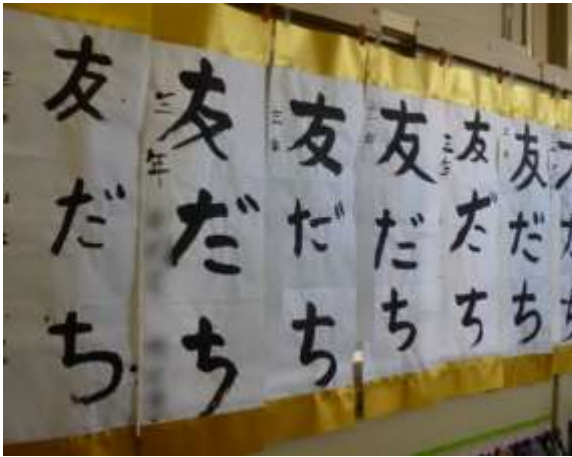 友だち
三年
友だち
三年
友だち
三年
友だち
三年
友だち
三年
友だち